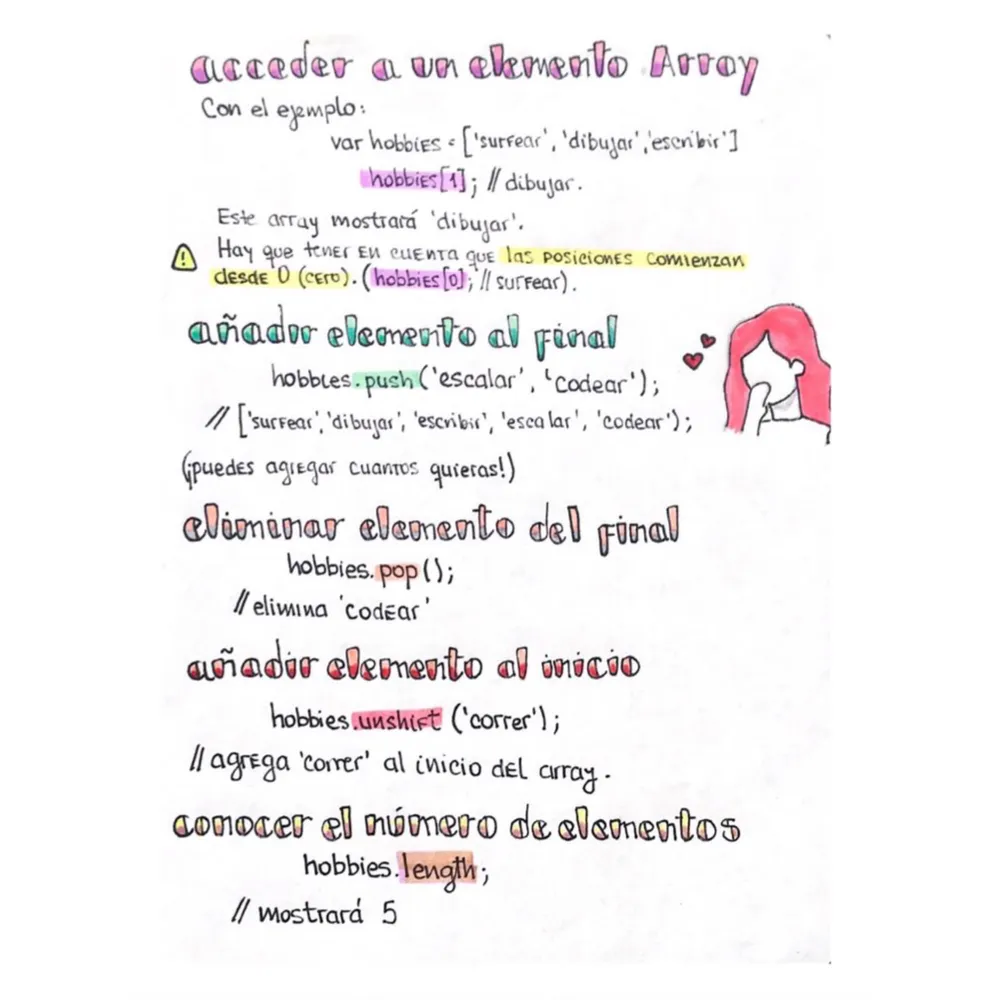 acceder a un elemento Array
Con el ejemplo:
var hobbies = ['surfear', 'dibujar', 'escribir']
hobbies[1]; // dibujar.
Este array mostrará 'dibujar'.
Hay que tener en cuenta que las posiciones comienzan
desde 0 (cero). (hobbies[0]; // surfear).
añadir elemento al final
hobbies.push('escalar', 'codear');
// ['surfear', 'dibujar', 'escribir', 'escalar', 'codear');
(¡puedes agregar cuantos quieras!)
eliminar elemento del final
hobbies.pop();
// elimina 'codear'
añadir elemento al inicio
hobbies.unshift ('correr');
// agrega 'correr' al inicio del array.
conocer el número de elementos
hobbies.length;
// mostrará 5